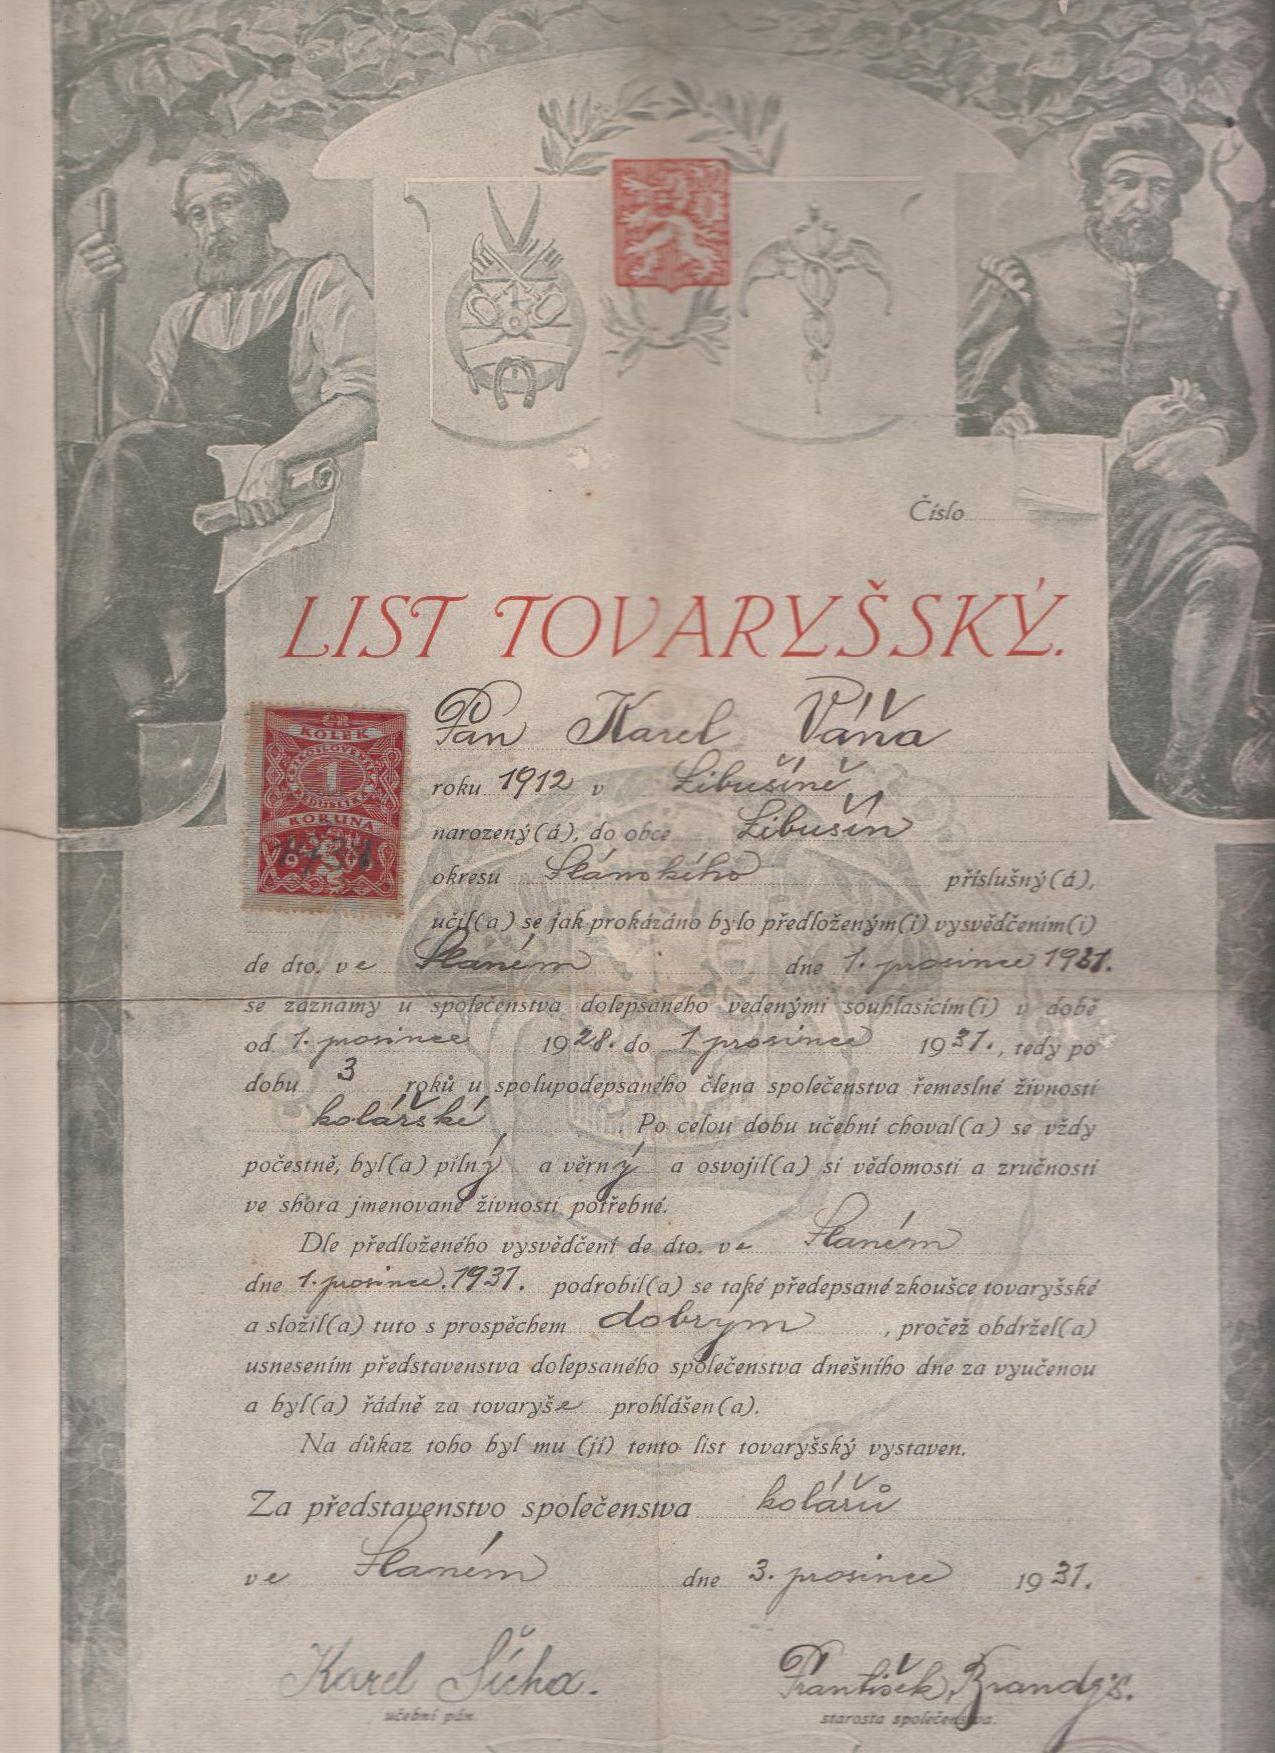 Číslo
LIST TOVARYŠSKÝ.
Pan Karel Váňa
KOLEK
1
KORUNA
roku 1912 v Libušíně
narozený(á), do obce Libušín
okresu Slánského příslušný(á),
učil(a) se jak prokázáno bylo předloženým(i) vysvědčením(i)
de dto. ve Slaném dne 1. prosince 1931.
se záznamy u společenstva dolepsaného vedenými souhlasícím(i) v době
od 1. prosince 1928. do 1 prosince 1931., tedy po
dobu 3 roků u spolupodepsaného člena společenstva řemeslné živnosti
kolářské. Po celou dobu učební choval(a) se vždy
počestně, byl(a) pilný a věrný a osvojil(a) si vědomosti a zručnosti
ve shora jmenované živnosti potřebné.
Dle předloženého vysvědčení de dto. ve Slaném
dne 1. prosince. 1931. podrobil(a) se také předepsané zkoušce tovaryšské
a složil(a) tuto s prospěchem dobrým, pročež obdržel(a)
usnesením představenstva dolepsaného společenstva dnešního dne za vyučenou
a byl(a) řádně za tovaryše prohlášen(a).
Na důkaz toho byl mu (jí) tento list tovaryšský vystaven.
Za představenstvo společenstva kolářů
ve Slaném dne 3. prosince 1931.
Karel Šícha. František Brandýs.
učební pán. starosta společenstva.